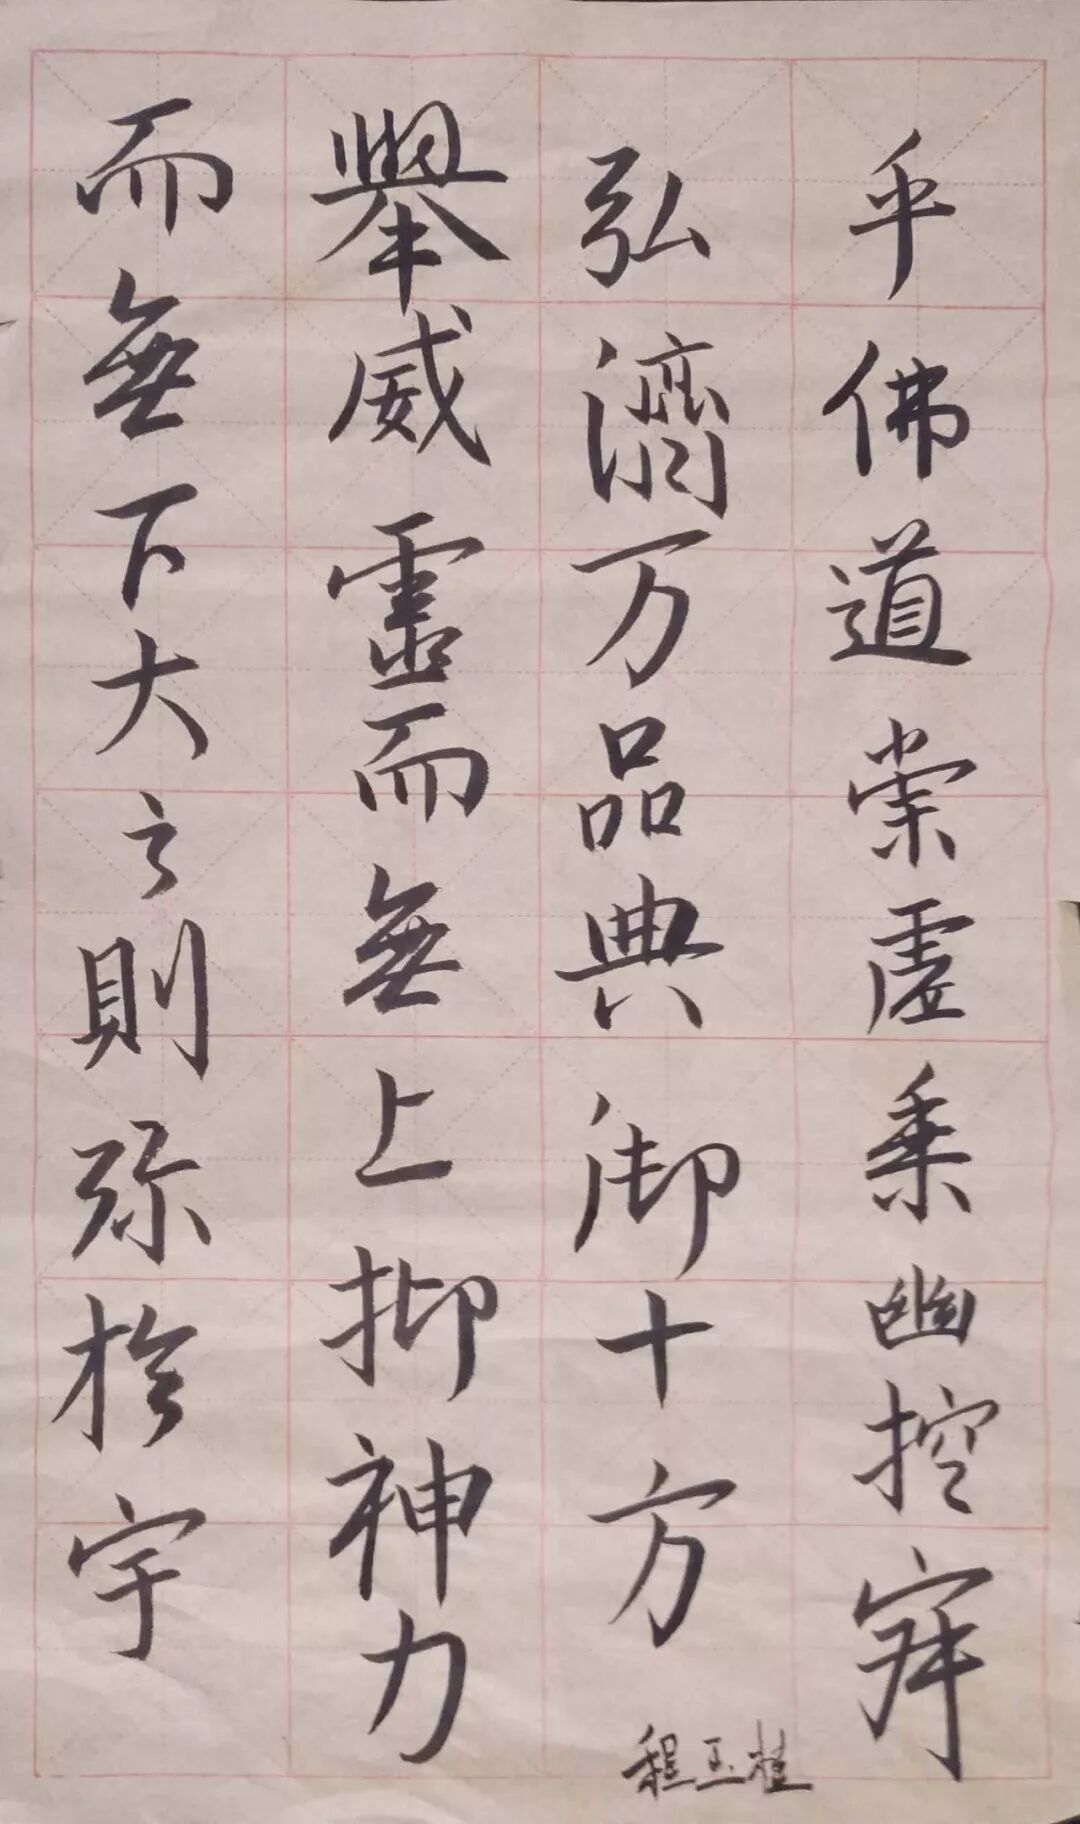 乎佛道崇虛乘幽控寂
弘濟万品典御十方
舉威靈而無上抑神力
而無下大之則弥於宇
程玉桂